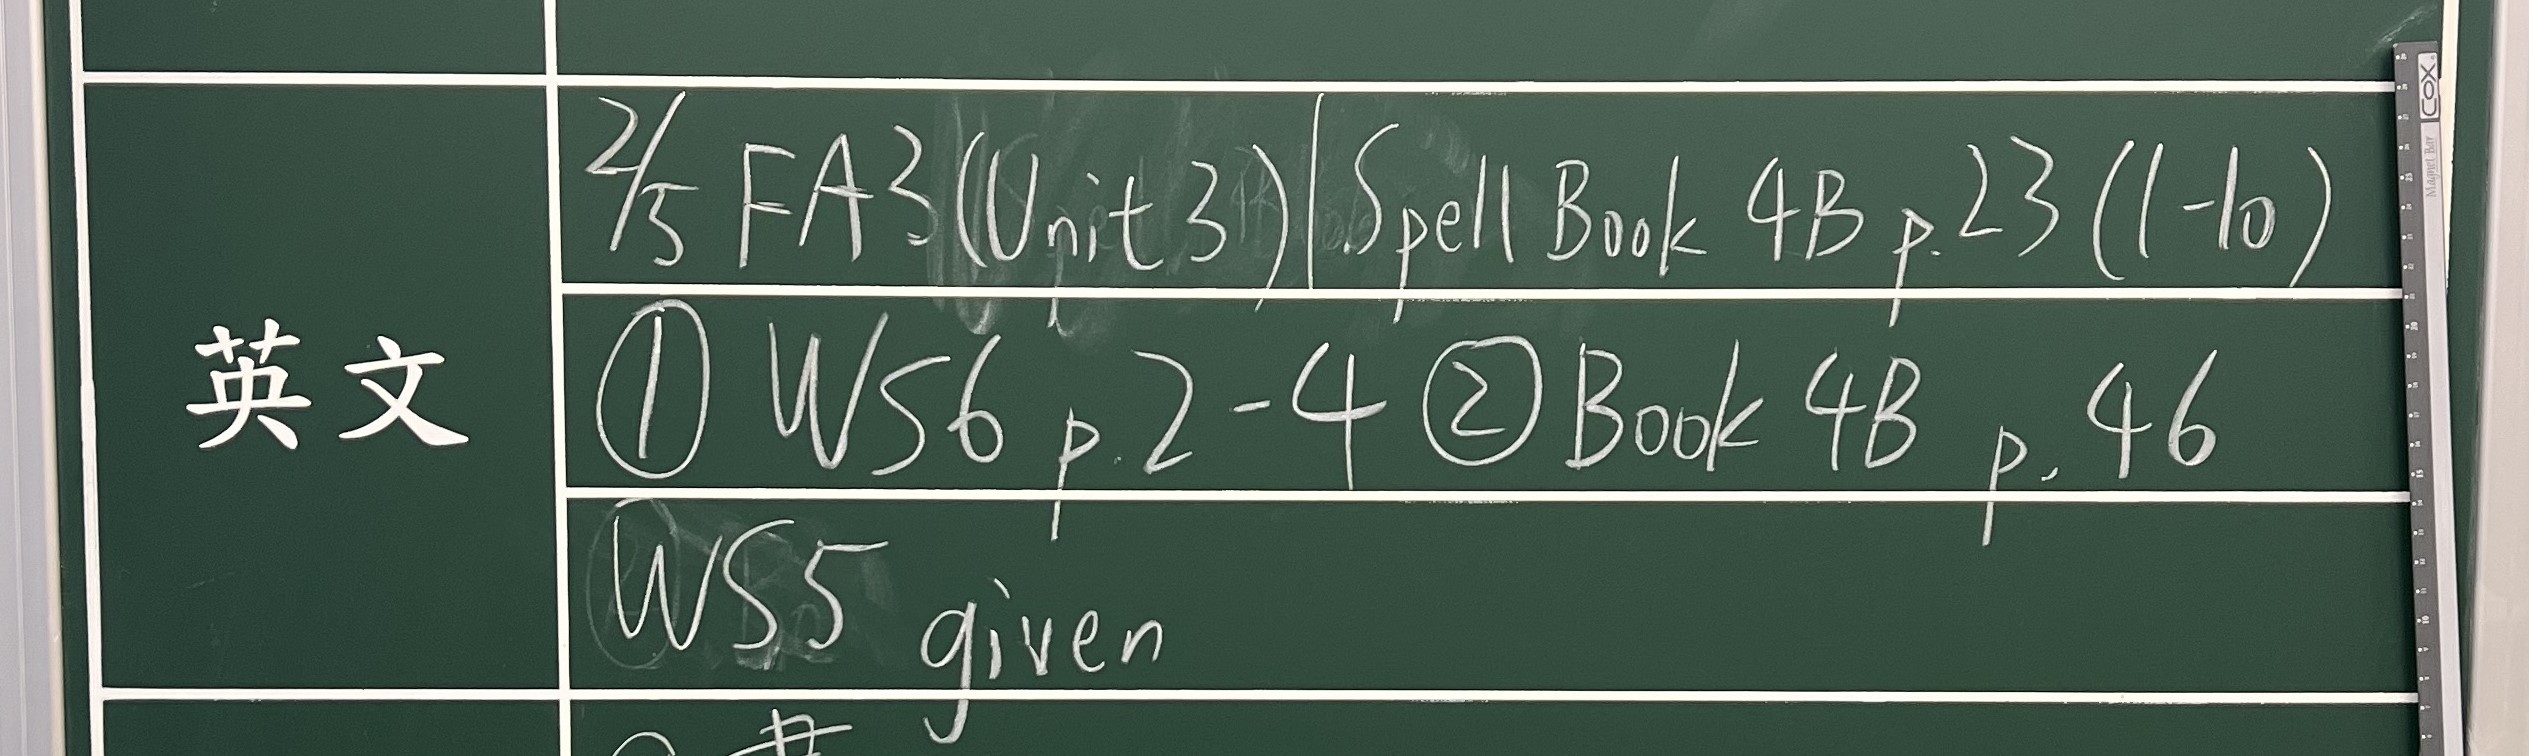 2/5 FA3 (Unit 3) | Spell Book 4B p.23 (1-10)
英文
① WS6 p.2-4 ② Book 4B p.46
WS5 given
COX
Magnet Bar